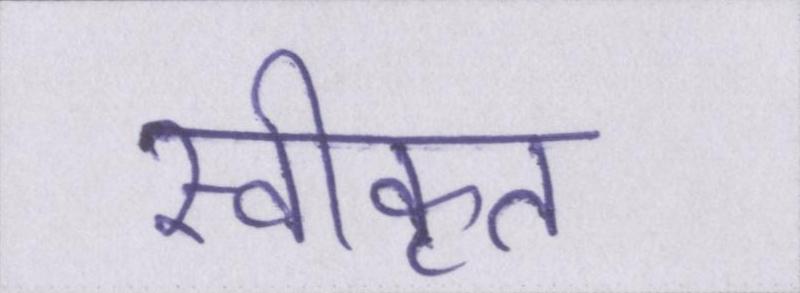 स्वीकृत